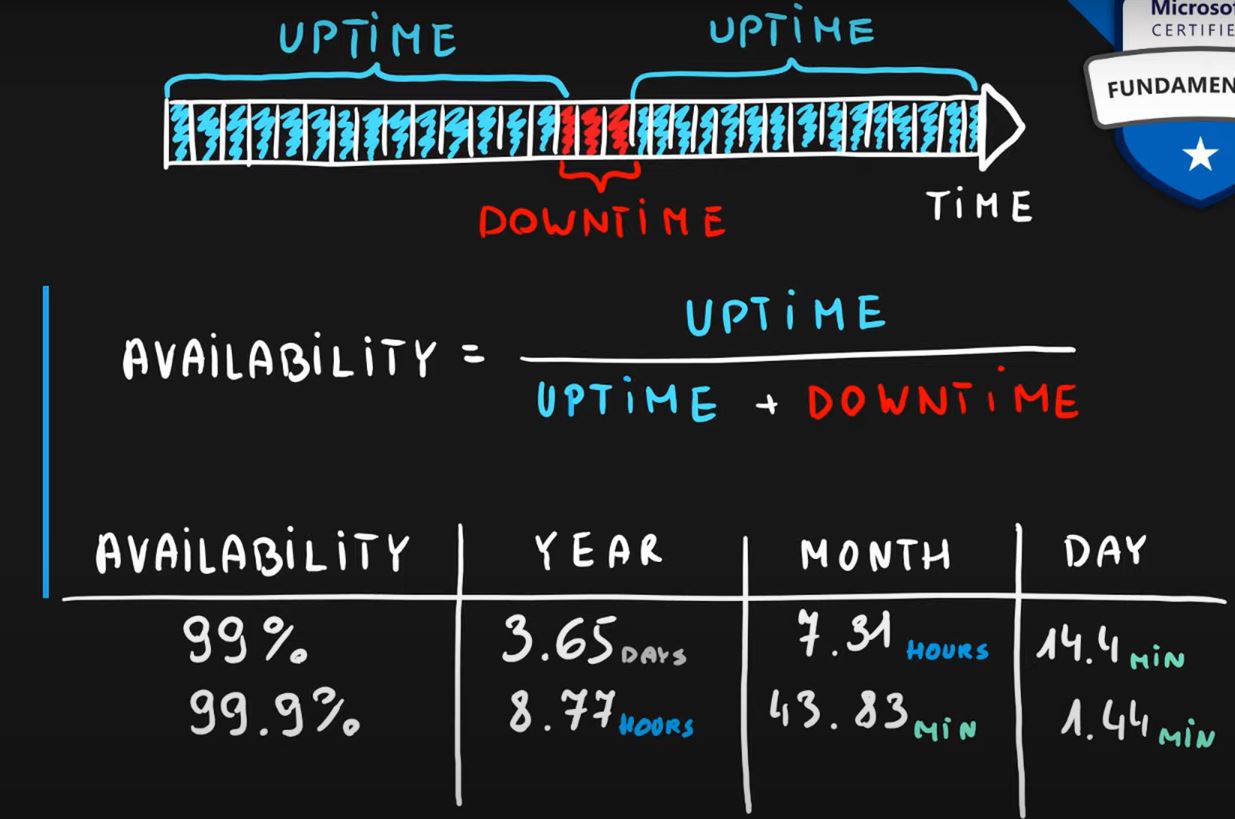 UPTiME UPTiME
Microsof
CERTIFIE
FUNDAMEN
DOWNTiME
TiME
AVAiLABiLiTY = UPTiME
UPTiME + DOWNTiME
AVAiLABiLiTY YEAR MONTH DAY
99% 3.65 DAYS 7.31 HOURS 14.4 MiN
99.9% 8.77 HOURS 43.83 MiN 1.44 MiN